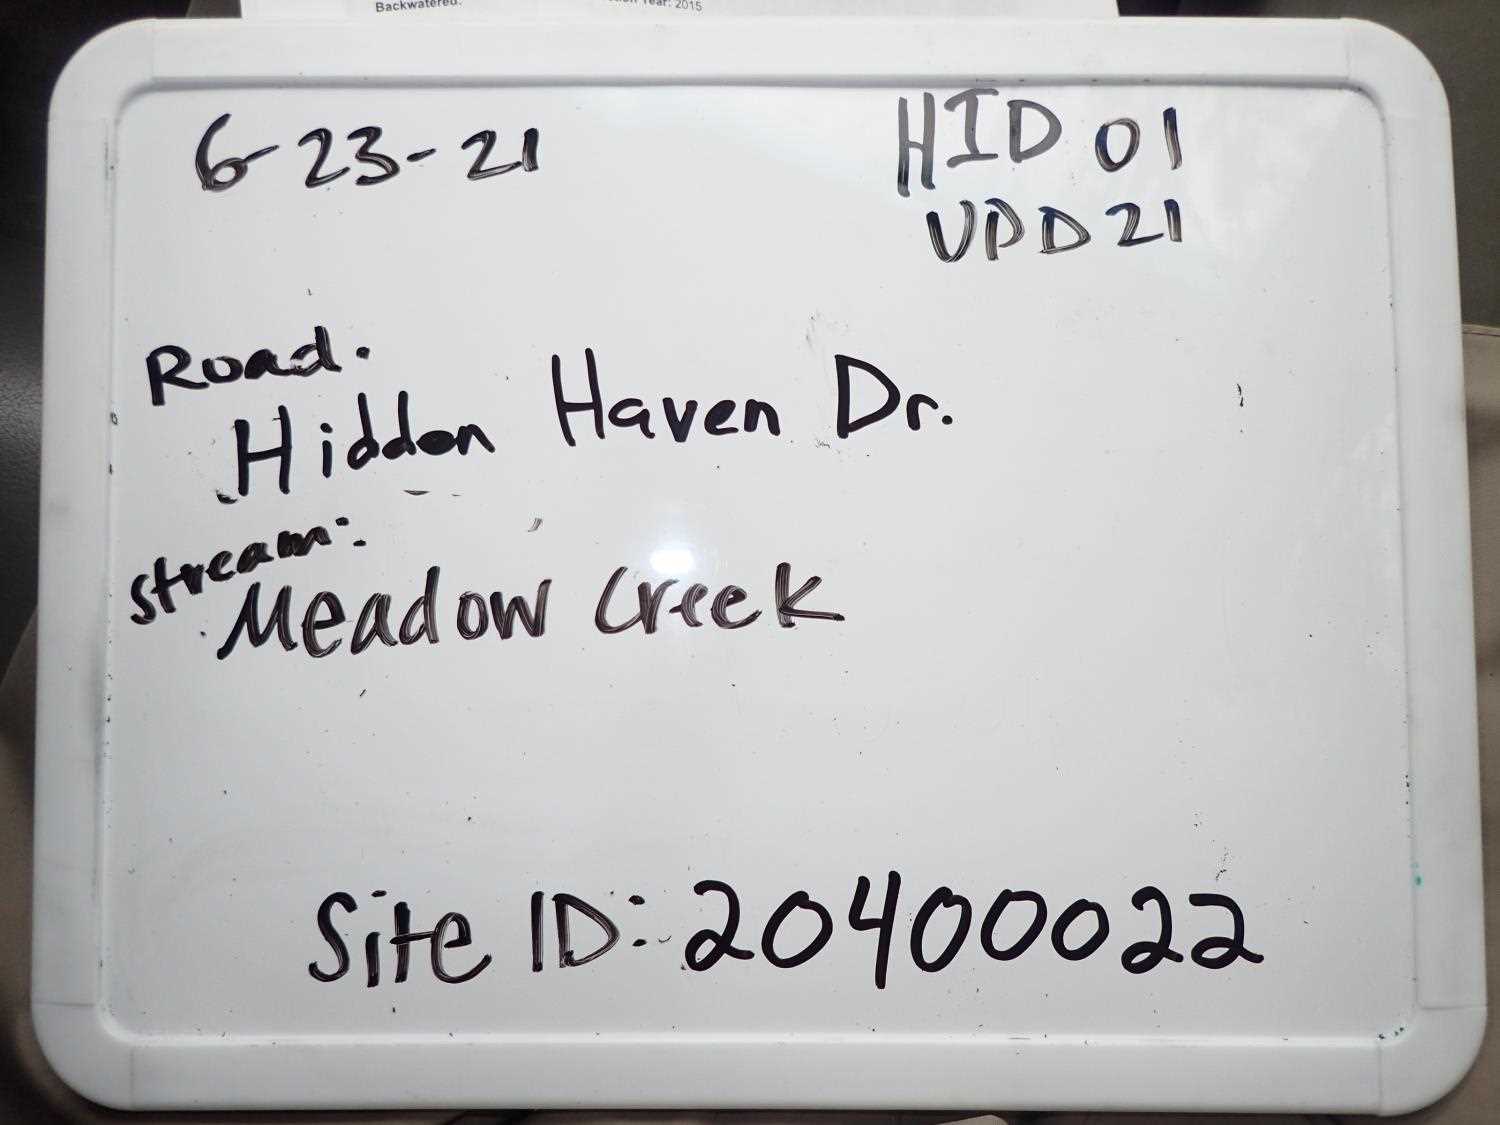 Backwatered:
Year: 2015
6-23-21
HID 01
UPD 21
Road:
Hidden Haven Dr.
Stream:
Meadow Creek
Site ID: 20400022